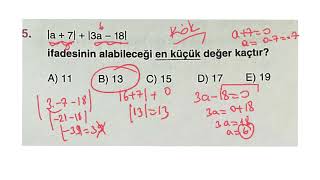 6
Kök
a+7=0
a=-7=-7
5. |a + 7| + |3a – 18|
ifadesinin alabileceği en küçük değer kaçtır?
A) 11 B) 13 C) 15 D) 17 E) 19
|3.-7-18| |6+7| + 0 3a-18=0
|-21-18| |13|=13 3a=0+18
|-39|=39 3a=18
a=6